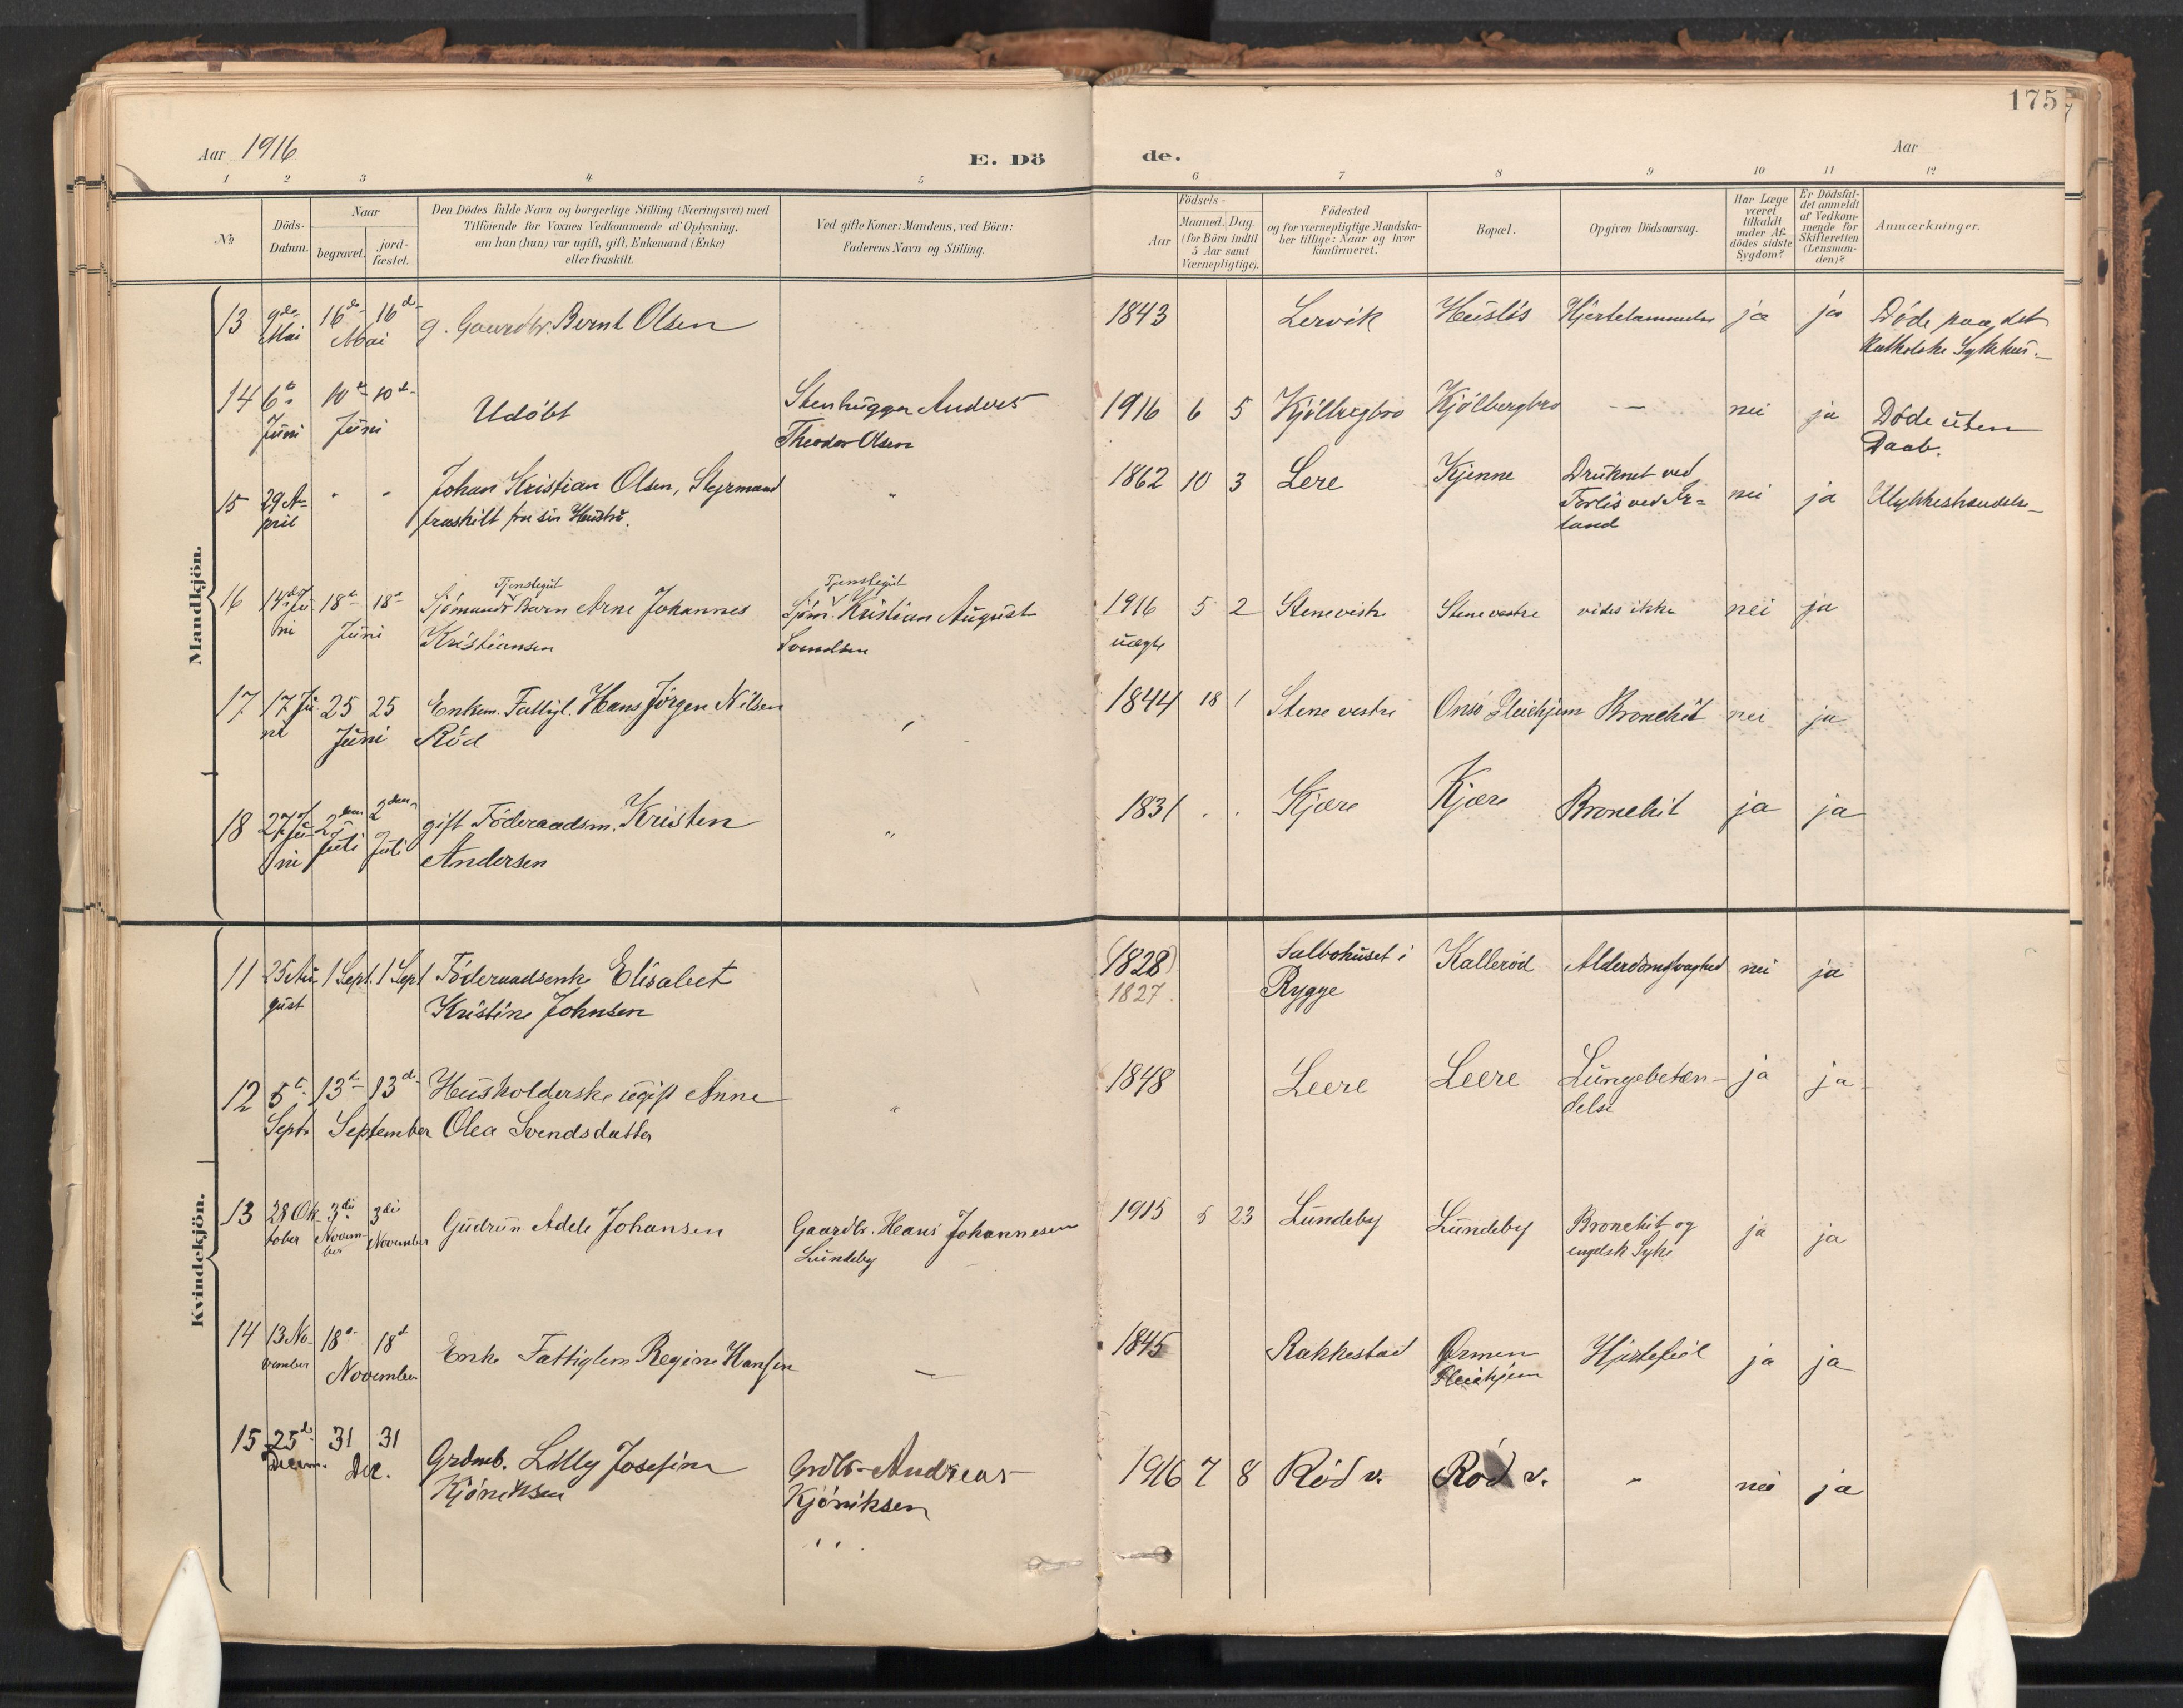 175
Aar 1916
E. Dö
de.
Aar
1 2 3 4 5 6 7 8 9 10 11 12
No
Döds-
Datum.
Naar
begravet.
jord-
fæstet.
Den Dödes fulde Navn og borgerlige Stilling (Næringsvei) med
Tilföiende for Voxnes Vedkommende af Oplysning,
om han (hun) var ugift, gift, Enkemand (Enke)
eller fraskilt.
Ved gifte Koner: Mandens, ved Börn:
Faderens Navn og Stilling.
Födsels-
Aar
Maaned. Dag.
(for Börn indtil
5 Aar samt
Værnepligtige).
Födested
og for værnepligtige Mandska-
ber tillige: Naar og hvor
konfirmeret.
Bopæl.
Opgiven Dödsaarsag.
Har Læge
været
tilkaldt
under Af-
dödes sidste
Sygdom?
Er Dödsfal-
det anmeldt
af Vedkom-
mende for
Skifteretten
(Lensman-
den)?
Anmærkninger.
Mandkjön.
13 9de 16de 16d g. Gaardbr. Bernt Olsen 1843 Lervik Huslös Hjertelammelse ja ja Döde paa det
Mai Mai katholske Sykehus.
14 6te 10d 10d Udöbt Stenhugger Anders 1916 6 5 Kjölbergbro Kjölbergbro — nei ja Döde uten
Juni Juni Theodor Olsen Daab.
15 29 A- " " Johan Kristian Olsen, Styrmand " 1862 10 3 Lere Kjenne Druknet ved nei ja Ulykkeshændelse
pril fraskilt fra sin Hustru. Forlis ved Ir-
land
Tjenstegut Tjenstegut
16 14de Ju 18d 18d Sjömands Barn Arne Johannes Sjöm. Kristian August 1916 5 2 Stene vestre Stene vestre vides ikke nei ja
ni Juni Kristiansen Svendsen uægte
17 17 Ju- 25 25 Enkem. Fattigl. Hans Jørgen Nilsen " 1844 18 1 Stene vestre Onsö Pleiehjem Bronchit nei ja
ni Juni Röd
18 27 Ju- 2den 2den gift Föderaadsm. Kristen " 1831 Kjære Kjære Bronchit ja ja
ni Juli Juli Andersen
Kvindekjön.
11 25 Au- 1 Sept. 1 Sept Föderaadsenke Elisabet (1828) Salbohuset i Kalleröd Alderdomssvaghed nei ja
gust Kristine Johnsen 1827. Rygge
12 5te 13d 13d Husholderske ugift Anne " 1848 Leere Leere Lungebetæn- ja ja
Sept. September Olea Svendsdatter delse
13 28 Ok- 3die 3die Gudrun Adele Johansen Gaardbr. Hans Johannesen 1915 5 23 Lundeby Lundeby Bronchit og ja ja
tober Novem- November Lundeby engelsk Syke
ber
14 13 No- 18d 18d Enke Fattiglem Regine Hansen — 1845 Rakkestad Ørmen Hjertefeil ja ja
vember November Pleiehjem
15 25d 31 31 Grdmb. Lilly Josefine Grdbr. Andreas 1916 7 8 Röd v. Röd v. " nei ja
Decem. Dec. Kjöniksen Kjöniksen